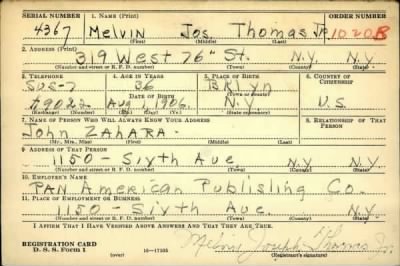 SERIAL NUMBER 1. NAME (Print) ORDER NUMBER
4367 Melvin Jos Thomas Jr. 1020B
(First) (Middle) (Last)
2. ADDRESS (Print)
319 West 76th St. N.Y. N.Y.
(Number and street or R. F. D. number) (Town) (County) (State)
3. TELEPHONE 4. AGE IN YEARS 5. PLACE OF BIRTH 6. COUNTRY OF CITIZENSHIP
SUS-7 36 BKlyn
DATE OF BIRTH (Town or county)
49022 Aug 1, 1906. N.Y. U.S.
(Exchange) (Number) (Mo.) (Day) (Yr.) (State or country)
7. NAME OF PERSON WHO WILL ALWAYS KNOW YOUR ADDRESS 8. RELATIONSHIP OF THAT PERSON
John ZAHARA.
(Mr., Mrs., Miss) (First) (Middle) (Last)
9. ADDRESS OF THAT PERSON
1150 - Sixth Ave N.Y. N.Y.
(Number and street or R. F. D. number) (Town) (County) (State)
10. EMPLOYER'S NAME
PAN American Publisling Co.
11. PLACE OF EMPLOYMENT OR BUSINESS
1150 - Sixth Ave. N.Y. N.Y.
(Number and street or R. F. D. number) (Town) (County) (State)
I AFFIRM THAT I HAVE VERIFIED ABOVE ANSWERS AND THAT THEY ARE TRUE.
REGISTRATION CARD Melvin Joseph Thomas Jr.
D. S. S. Form 1 16-17105
(over) (Registrant's signature)